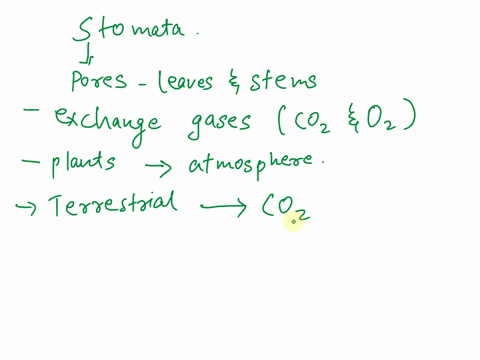 Stomata.
↓
Pores - leaves & stems
- exchange gases (CO₂ & O₂)
- plants → atmosphere.
→ Terrestrial → CO₂